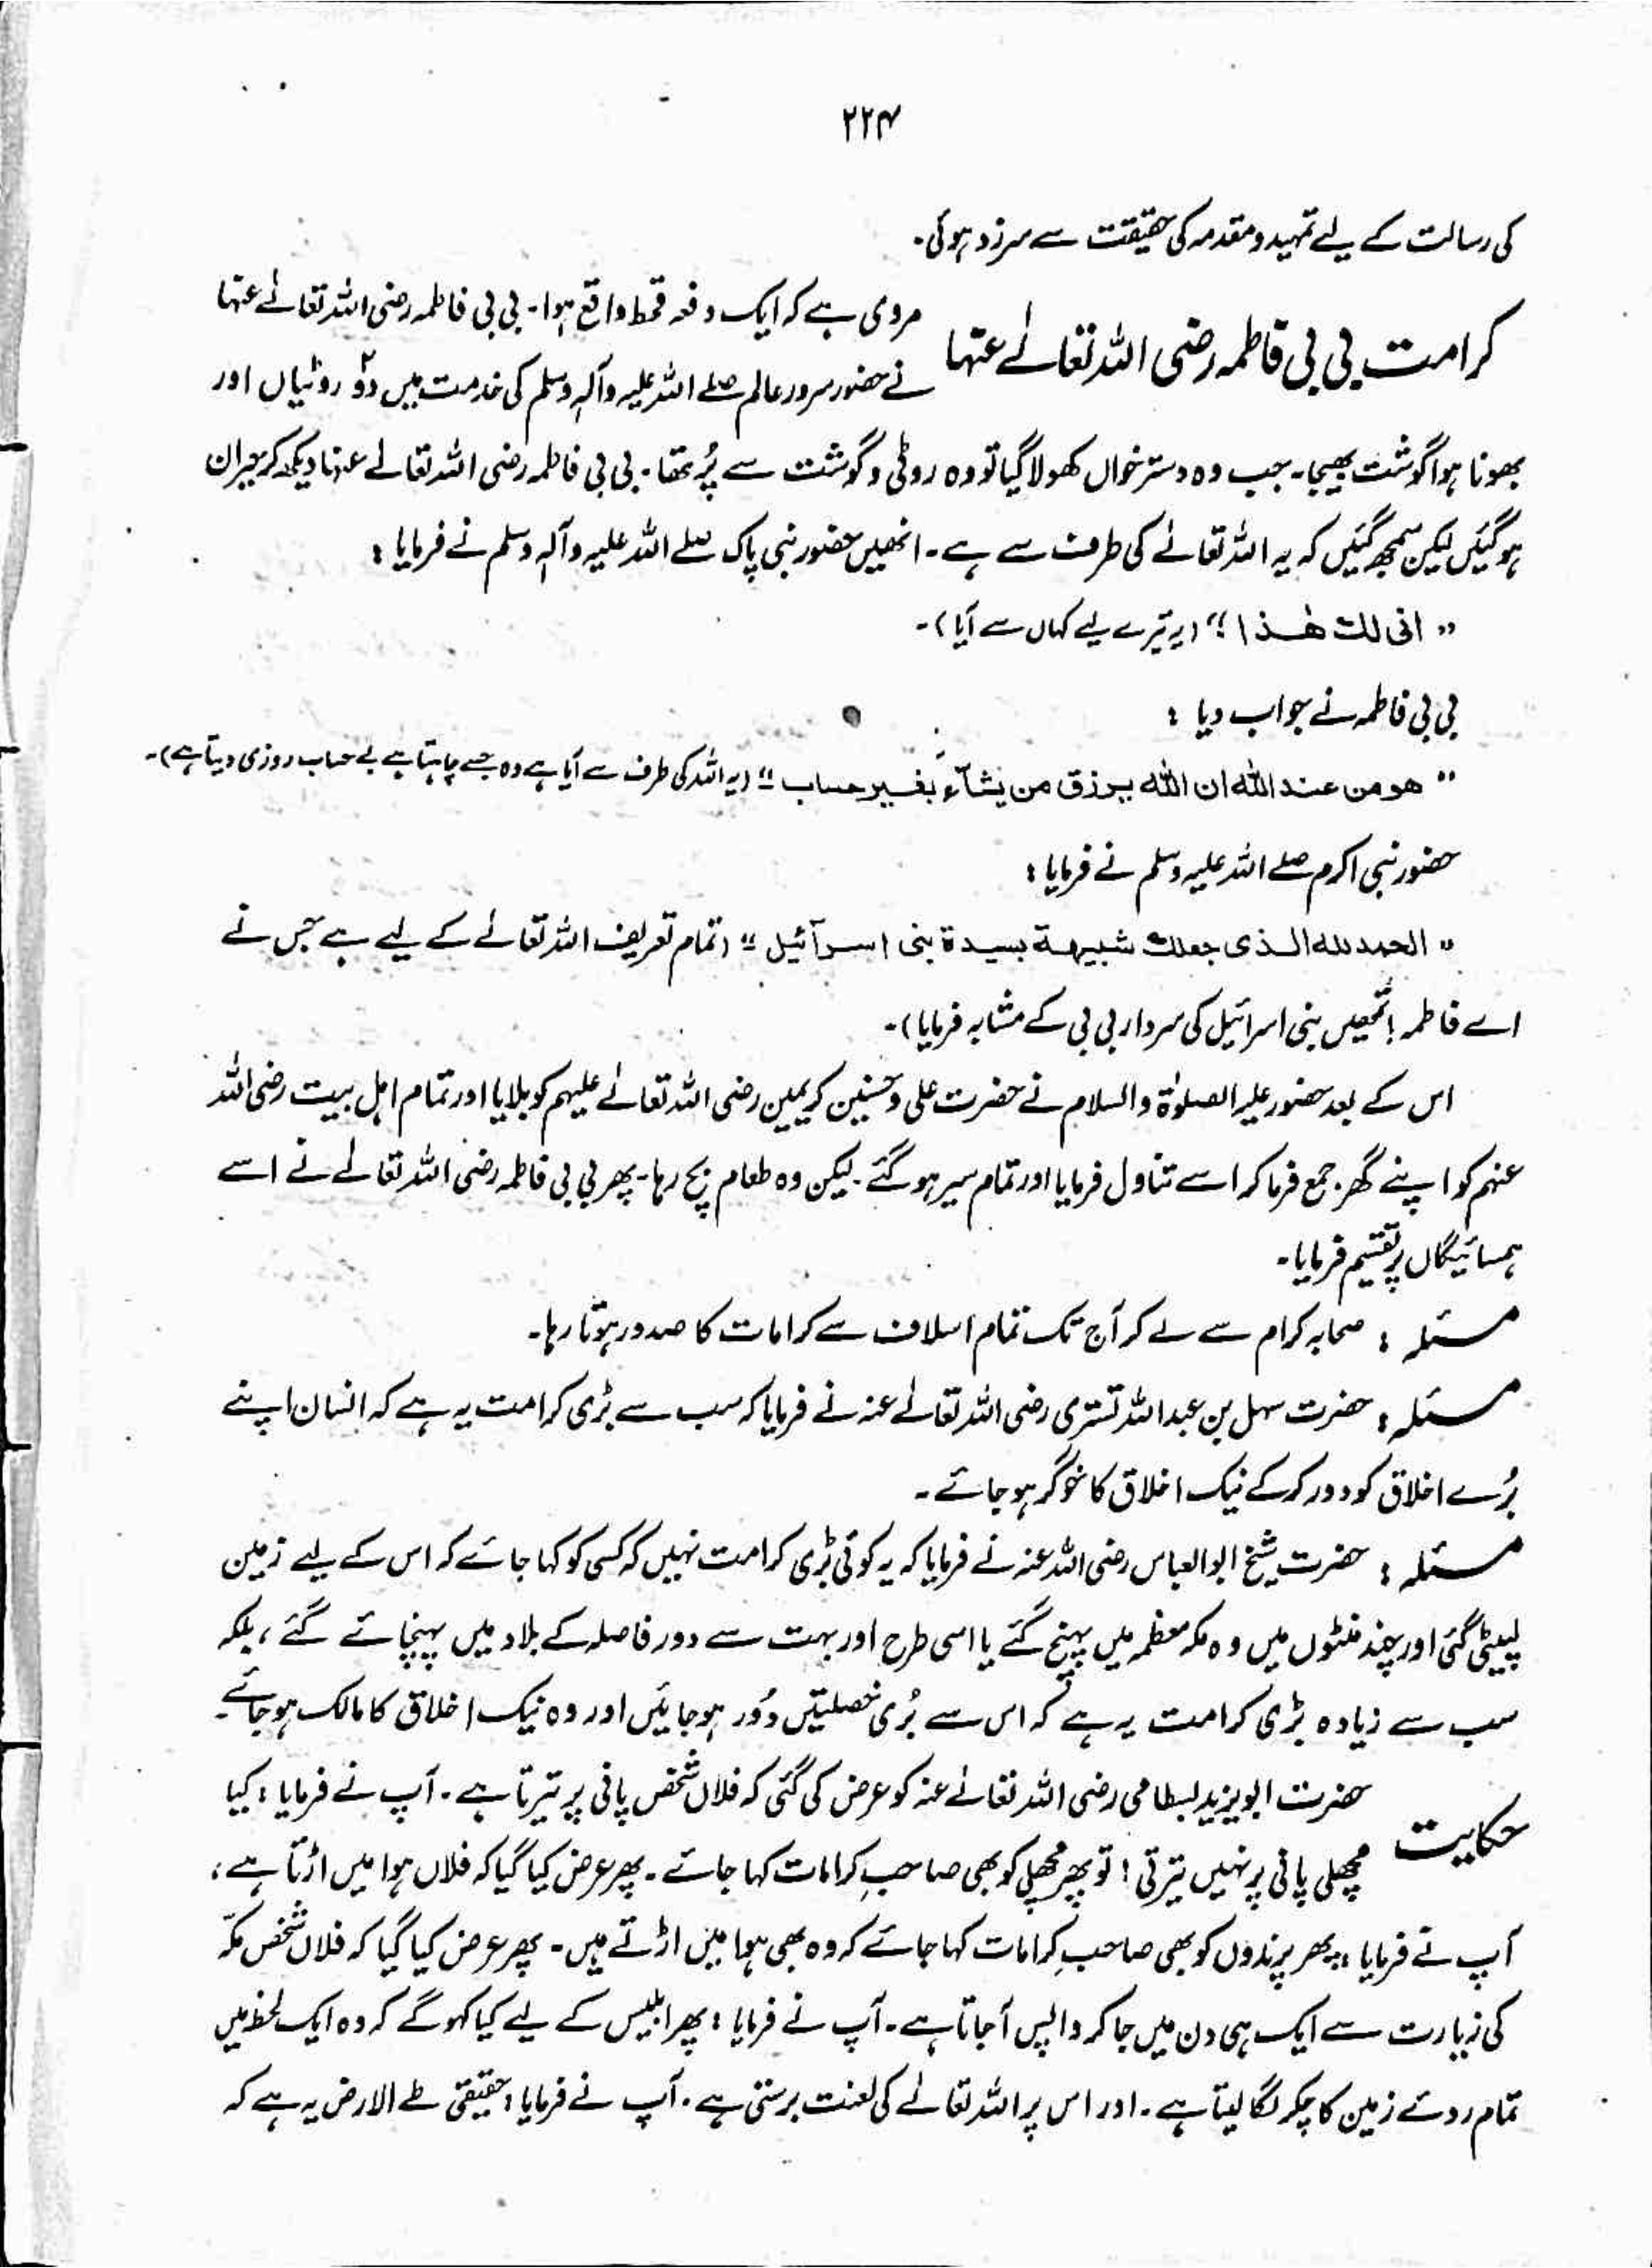 ۲۲۴
کی رسالت کے لیے تمہید و مقدمہ کی حقیقت سے سرزد ہوئی۔
کرامت بی بی فاطمہ رضی اللہ تعالےٰ عنہا
مروی ہے کہ ایک دفعہ قحط واقع ہوا۔ بی بی فاطمہ رضی اللہ تعالےٰ عنہا
نے حضور سرور عالم صلے اللہ علیہ وآلہٖ وسلم کی خدمت میں دو۲ روٹیاں اور
بھونا ہوا گوشت بھیجا۔ جب وہ دسترخوان کھولا گیا تو وہ روٹی و گوشت سے پُر تھا۔ بی بی فاطمہ رضی اللہ تعالےٰ عنہا دیکھ کر حیران
ہو گئیں لیکن سمجھ گئیں کہ یہ اللہ تعالےٰ کی طرف سے ہے۔ انھیں حضور نبی پاک صلے اللہ علیہ وآلہٖ وسلم نے فرمایا :
" انی لک ھٰذا ؟" (یہ تیرے لیے کہاں سے آیا)۔
بی بی فاطمہ نے جواب دیا :
" ھو من عند اللہ ان اللہ یرزق من یشآء بغیر حساب " (یہ اللہ کی طرف سے آیا ہے وہ جسے چاہتا ہے بے حساب روزی دیتا ہے)۔
حضور نبی اکرم صلے اللہ علیہ وسلم نے فرمایا :
" الحمد للہ الذی جعلک شبیھۃ بسیدۃ بنی اسرآئیل " (تمام تعریف اللہ تعالےٰ کے لیے ہے جس نے
اے فاطمہ! تمھیں بنی اسرائیل کی سردار بی بی کے مشابہ فرمایا)۔
اس کے بعد حضور علیہ الصلوٰۃ والسلام نے حضرت علی و حسنین کریمین رضی اللہ تعالےٰ علیہم کو بلایا اور تمام اہل بیت رضی اللہ
عنہم کو اپنے گھر جمع فرما کر اسے تناول فرمایا اور تمام سیر ہو گئے۔ لیکن وہ طعام بچ رہا۔ پھر بی بی فاطمہ رضی اللہ تعالےٰ نے اسے
ہمسائیگاں پر تقسیم فرمایا۔
مسئلہ : صحابہ کرام سے لے کر آج تک تمام اسلاف سے کرامات کا صدور ہوتا رہا۔
مسئلہ : حضرت سہل بن عبداللہ تستری رضی اللہ تعالےٰ عنہ نے فرمایا کہ سب سے بڑی کرامت یہ ہے کہ انسان اپنے
بُرے اخلاق کو دور کر کے نیک اخلاق کا خوگر ہو جائے۔
مسئلہ : حضرت شیخ ابوالعباس رضی اللہ عنہ نے فرمایا کہ یہ کوئی بڑی کرامت نہیں کہ کسی کو کہا جائے کہ اس کے لیے زمین
لپیٹی گئی اور چند منٹوں میں وہ مکہ معظمہ میں پہنچ گئے یا اسی طرح اور بہت سے دور فاصلہ کے بلاد میں پہنچائے گئے، بلکہ
سب سے زیادہ بڑی کرامت یہ ہے کہ اس سے بُری خصلتیں دُور ہو جائیں اور وہ نیک اخلاق کا مالک ہو جائے۔
حکایت
حضرت ابو یزید بسطامی رضی اللہ تعالےٰ عنہ کو عرض کی گئی کہ فلاں شخص پانی پر تیرتا ہے۔ آپ نے فرمایا : کیا
مچھلی پانی پر نہیں تیرتی! تو پھر مچھلی کو بھی صاحبِ کرامات کہا جائے۔ پھر عرض کیا گیا کہ فلاں ہوا میں اڑتا ہے،
آپ نے فرمایا : پھر پرندوں کو بھی صاحبِ کرامات کہا جائے کہ وہ بھی ہوا میں اڑتے ہیں۔ پھر عرض کیا گیا کہ فلاں شخص مکّہ
کی زیارت سے ایک ہی دن میں جا کر واپس آجاتا ہے۔ آپ نے فرمایا : پھر ابلیس کے لیے کیا کہو گے کہ وہ ایک لحظہ میں
تمام روئے زمین کا چکر لگا لیتا ہے۔ اور اس پر اللہ تعالےٰ کی لعنت برستی ہے۔ آپ نے فرمایا : حقیقی طے الارض یہ ہے کہ